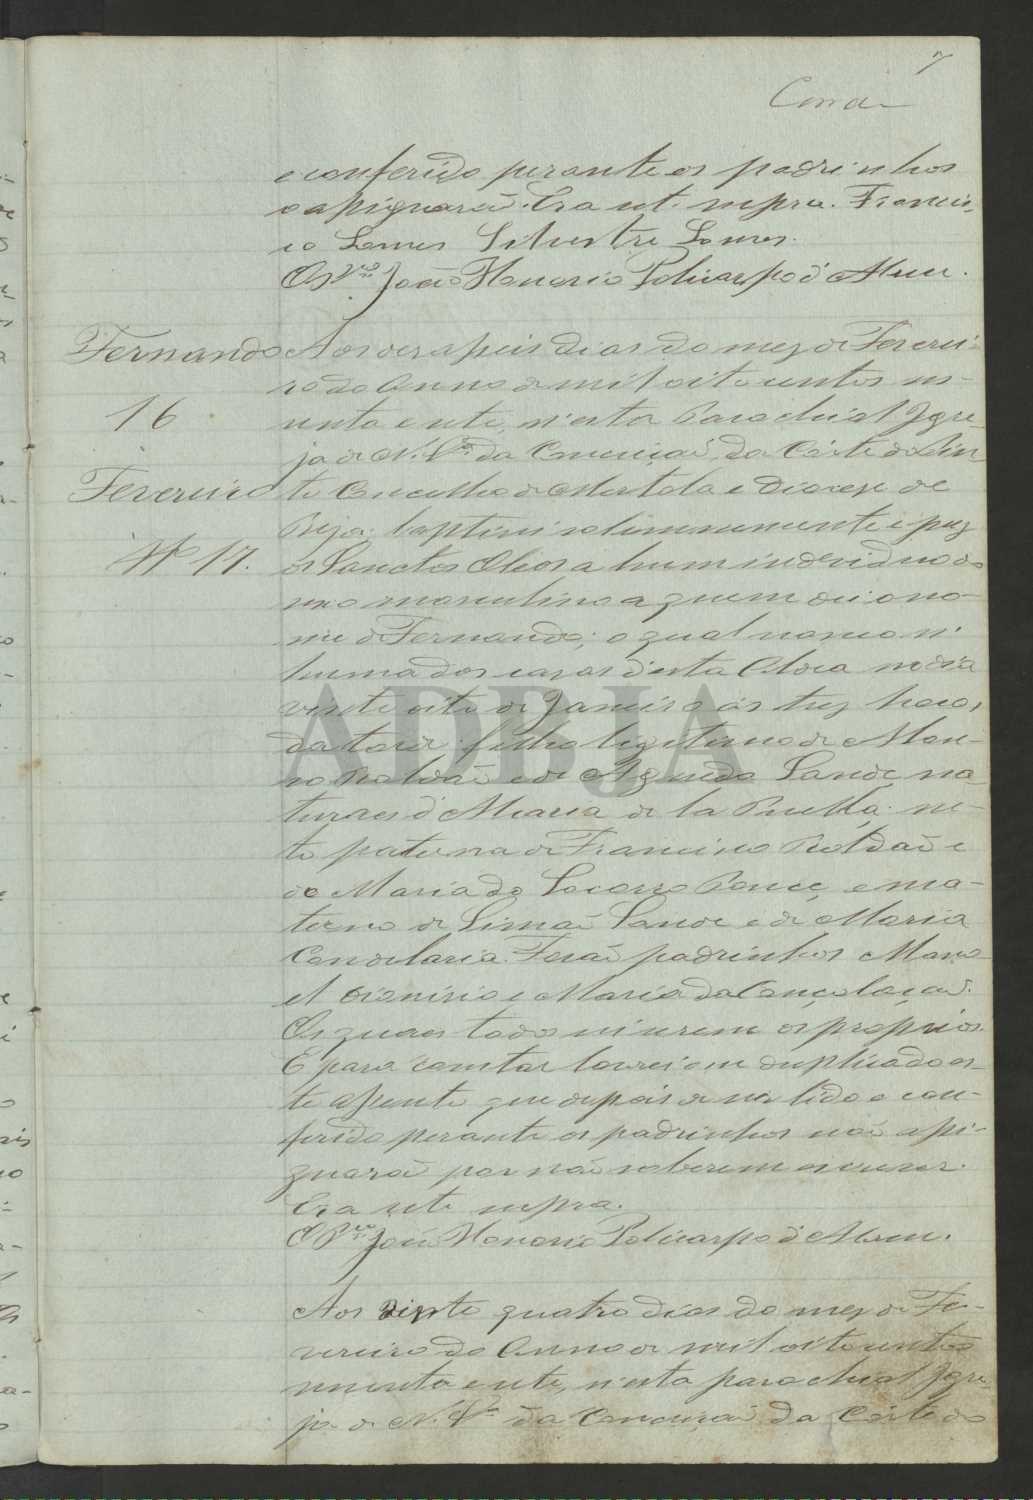 7
e conferido perante os padrinhos
o assignarão. Era ut supra. Francis-
co Lemes Silvestre Lemes.
O P.e João Honorio Policarpo d'
Fernando
16
Fevereiro
Nº 17.
Aos desaseis dias do mez de Feverei-
ro do anno de mil oitocentos se-
tenta e sete, n'esta Parochial Igre-
ja de N. Sr.ª da Conceição da Côrte do Pin-
to Concelho de Mertola e Diocese de
Beja. baptizei solemnemente e puz
os Sanctos Oleos a hum individuo do
sexo masculino a quem dei o no-
me de Fernando; o qual nasceo n'
huma das casas d'esta Aldea no dia
vinte oito de Janeiro ás trez horas
da tarde filho legitimo de
Roldão e de Agueda Sande na-
turaes d' de la Puebla. ne-
to paterno de Francisco Roldão e
de Maria do Socorro Ponce, e ma-
terno de Simão Sande e de Maria
Candelaria. Forão padrinhos Mano-
el Dionisio e Maria da Conçolação.
Os quaes todos os proprios.
E para constar lavrei em duplicado es-
te assento que depois de ser lido e con-
ferido perante os padrinhos não assi-
gnarão por não saberem escrever.
Era ut supra.
O P.e João Honorio Policarpo d'
Aos vinte quatro dias do mez de Fe-
vereiro do Anno de mil oitocentos
setenta e sete, n'esta parochial Igre-
ja de N. Sr.ª da Conceição da Côrte do
ADBJA